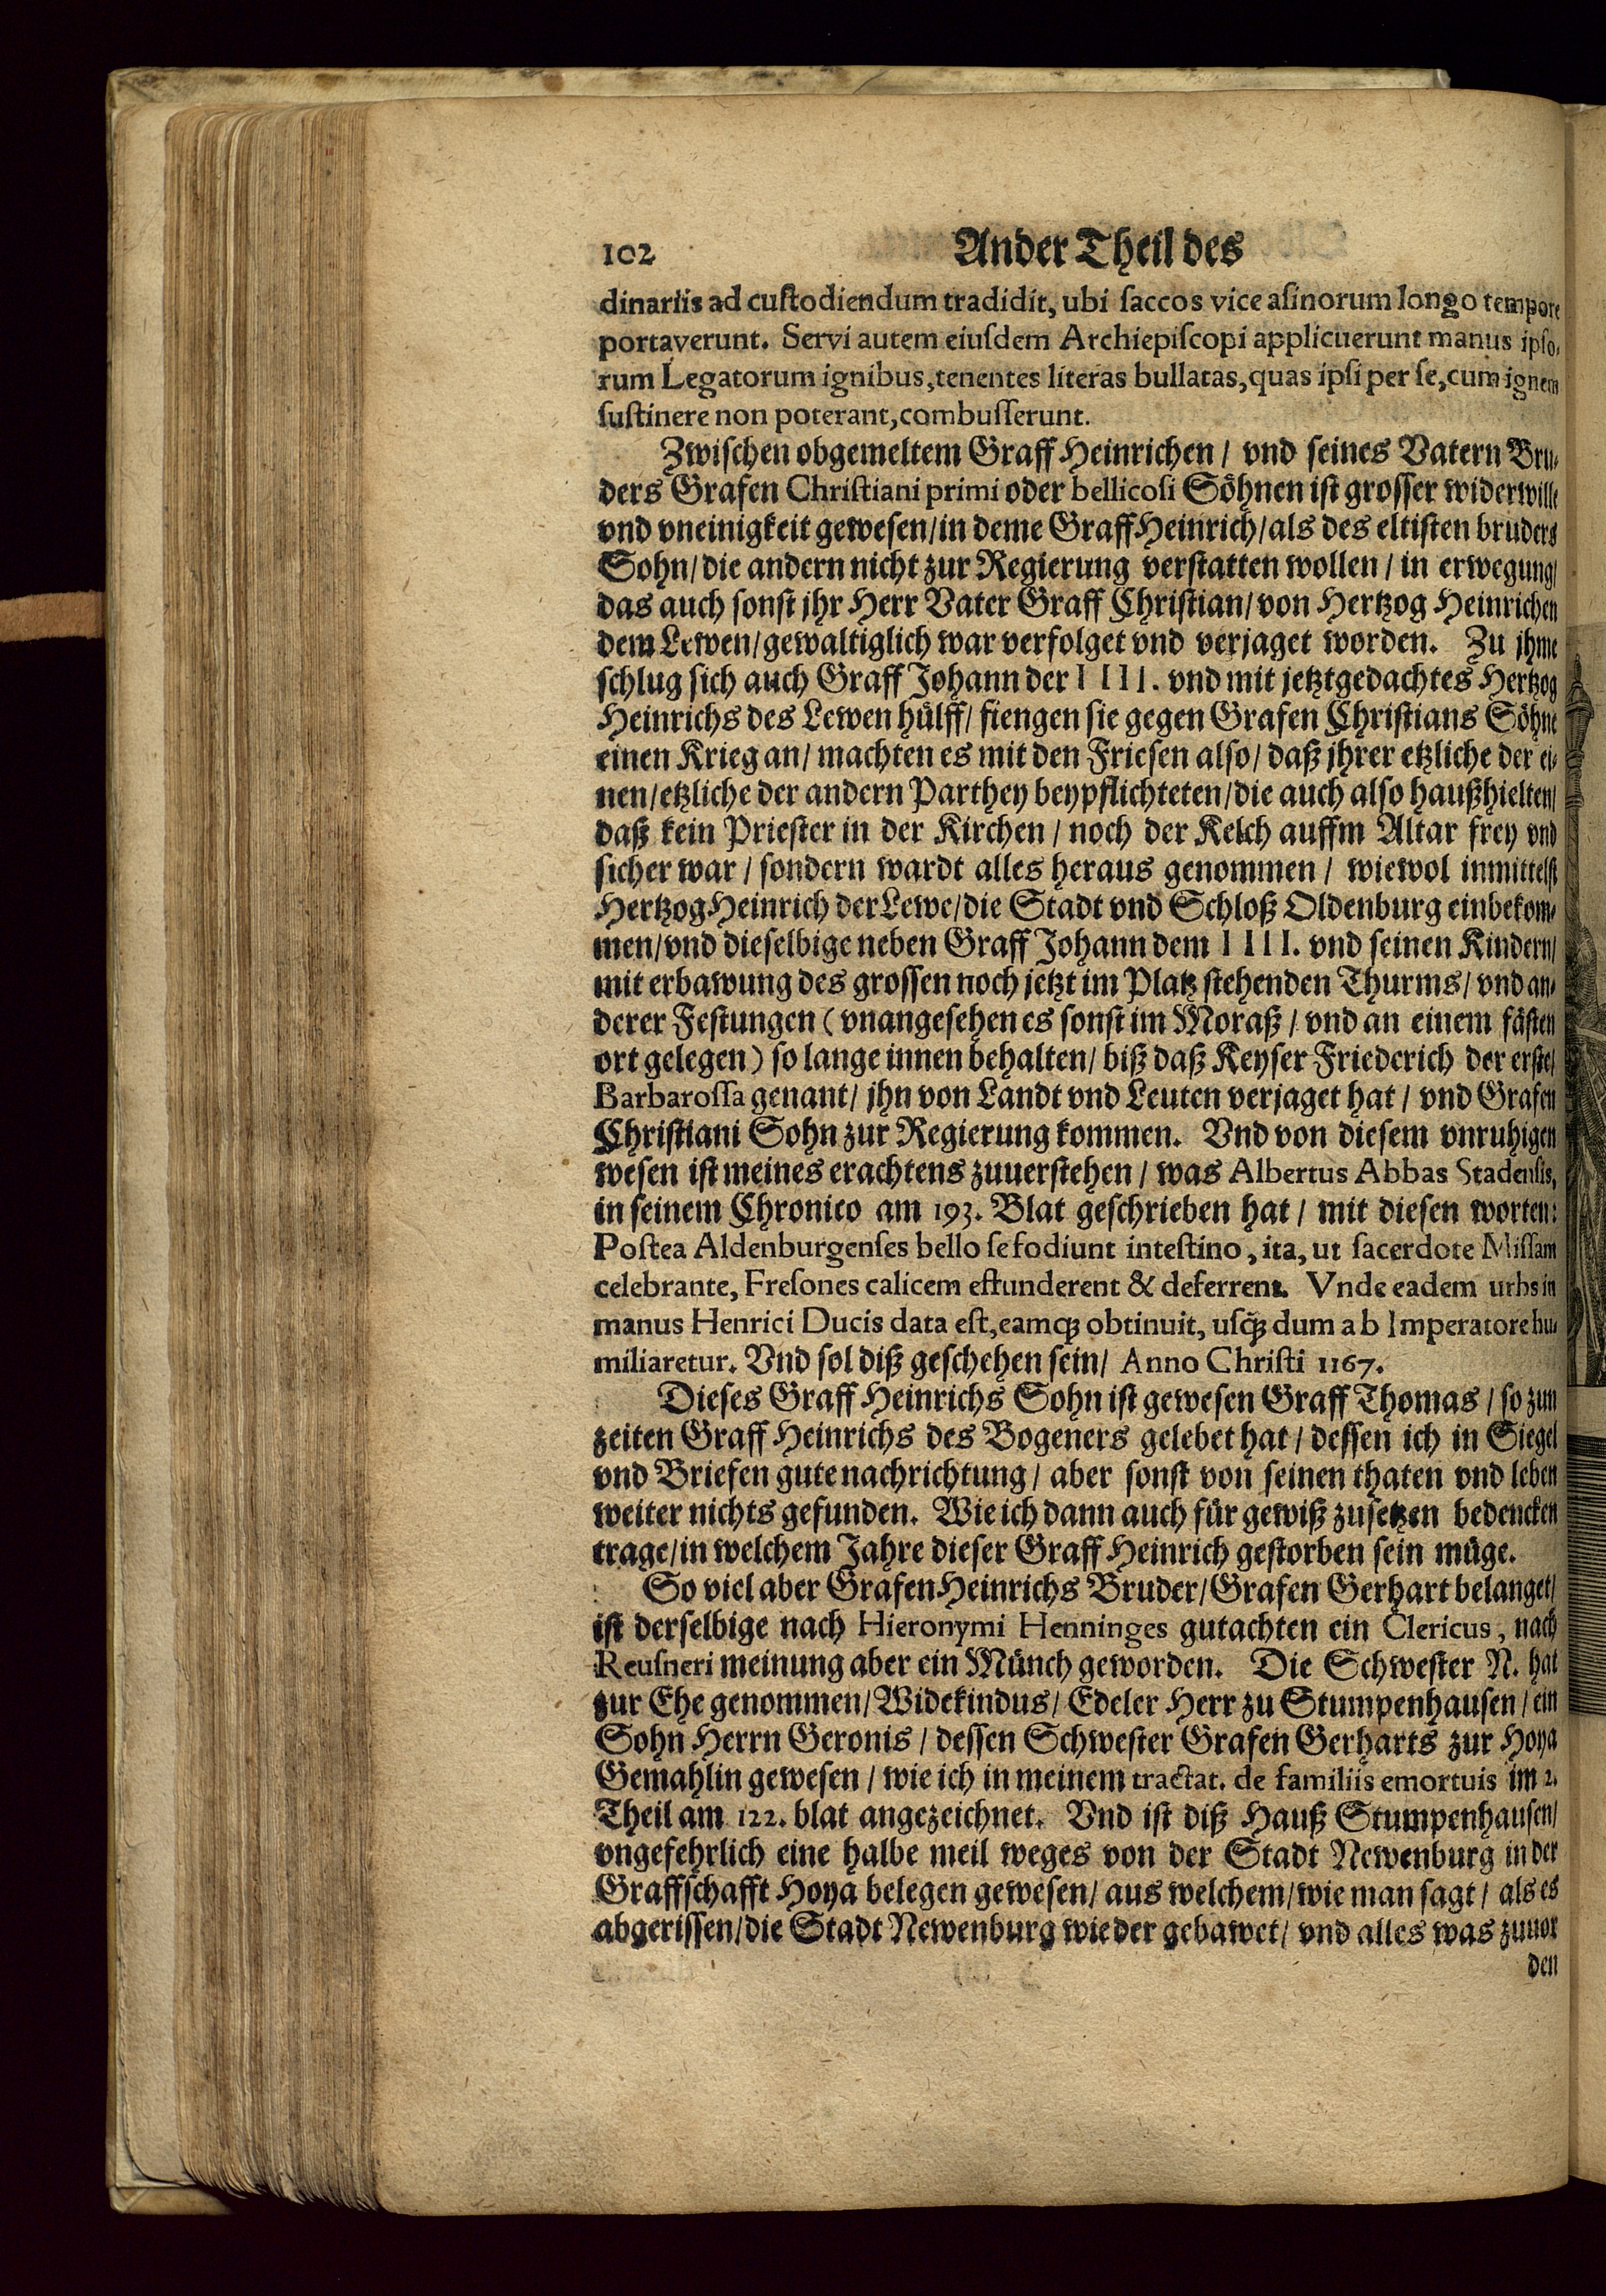 102 Ander Theil des
dinariis ad custodiendum tradidit, ubi saccos vice asinorum longo tempore
portaverunt. Servi autem eiusdem Archiepiscopi applicuerunt manus ipso-
rum Legatorum ignibus, tenentes literas bullatas, quas ipsi per se, cum ignem
sustinere non poterant, combusserunt.
Zwischen obgemeltem Graff Heinrichen / vnd seines Vatern Bru-
ders Grafen Christiani primi oder bellicosi Söhnen ist grosser widerwille
vnd vneinigkeit gewesen / in deme Graff Heinrich / als des eltisten bruders
Sohn / die andern nicht zur Regierung verstatten wollen / in erwegung /
das auch sonst jhr Herr Vater Graff Christian / von Hertzog Heinrichen
dem Lewen / gewaltiglich war verfolget vnd verjaget worden. Zu jhme
schlug sich auch Graff Johann der IIII. vnd mit jetztgedachtes Hertzog
Heinrichs des Lewen hülff / fiengen sie gegen Grafen Christians Söhne
einen Krieg an / machten es mit den Friesen also / daß jhrer etzliche der ei-
nen / etzliche der andern Parthey beypflichteten / die auch also haußhielten /
daß kein Priester in der Kirchen / noch der Kelch auffm Altar frey vnd
sicher war / sondern wardt alles heraus genommen / wiewol inmittelst
Hertzog Heinrich der Lewe / die Stadt vnd Schloß Oldenburg einbekom-
men / vnd dieselbige neben Graff Johann dem IIII. vnd seinen Kindern /
mit erbawung des grossen noch jetzt im Platz stehenden Thurms / vnd an-
derer Festungen (vnangesehen es sonst im Moraß / vnd an einem fästen
ort gelegen) so lange innen behalten / biß daß Keyser Friederich der erste /
Barbarossa genant / jhn von Landt vnd Leuten verjaget hat / vnd Grafen
Christiani Sohn zur Regierung kommen. Vnd von diesem vnruhigen
wesen ist meines erachtens zuuerstehen / was Albertus Abbas Stadensis,
in seinem Chronico am 193. Blat geschrieben hat / mit diesen worten:
Postea Aldenburgenses bello se fodiunt intestino, ita, ut sacerdote Missam
celebrante, Fresones calicem effunderent & deferrent. Vnde eadem urbs in
manus Henrici Ducis data est, eamq́; obtinuit, usq́; dum ab Imperatore hu-
miliaretur. Vnd sol diß geschehen sein / Anno Christi 1167.
Dieses Graff Heinrichs Sohn ist gewesen Graff Thomas / so zun
zeiten Graff Heinrichs des Bogeners gelebet hat / dessen ich in Siegel
vnd Briefen gute nachrichtung / aber sonst von seinen thaten vnd leben
weiter nichts gefunden. Wie ich dann auch für gewiß zusetzen bedencken
trage / in welchem Jahre dieser Graff Heinrich gestorben sein müge.
So viel aber Grafen Heinrichs Bruder / Grafen Gerhart belanget /
ist derselbige nach Hieronymi Henninges gutachten ein Clericus, nach
Reusneri meinung aber ein Münch geworden. Die Schwester N. hat
zur Ehe genommen / Widekindus / Edeler Herr zu Stumpenhausen / ein
Sohn Herrn Geronis / dessen Schwester Grafen Gerharts zur Hoya
Gemahlin gewesen / wie ich in meinem tractat. de familiis emortuis im 2.
Theil am 122. blat angezeichnet. Vnd ist diß Hauß Stumpenhausen /
vngefehrlich eine halbe meil weges von der Stadt Newenburg in der
Graffschafft Hoya belegen gewesen / aus welchem / wie man sagt / als es
abgerissen / die Stadt Newenburg wieder gebawet / vnd alles was zuuor
den